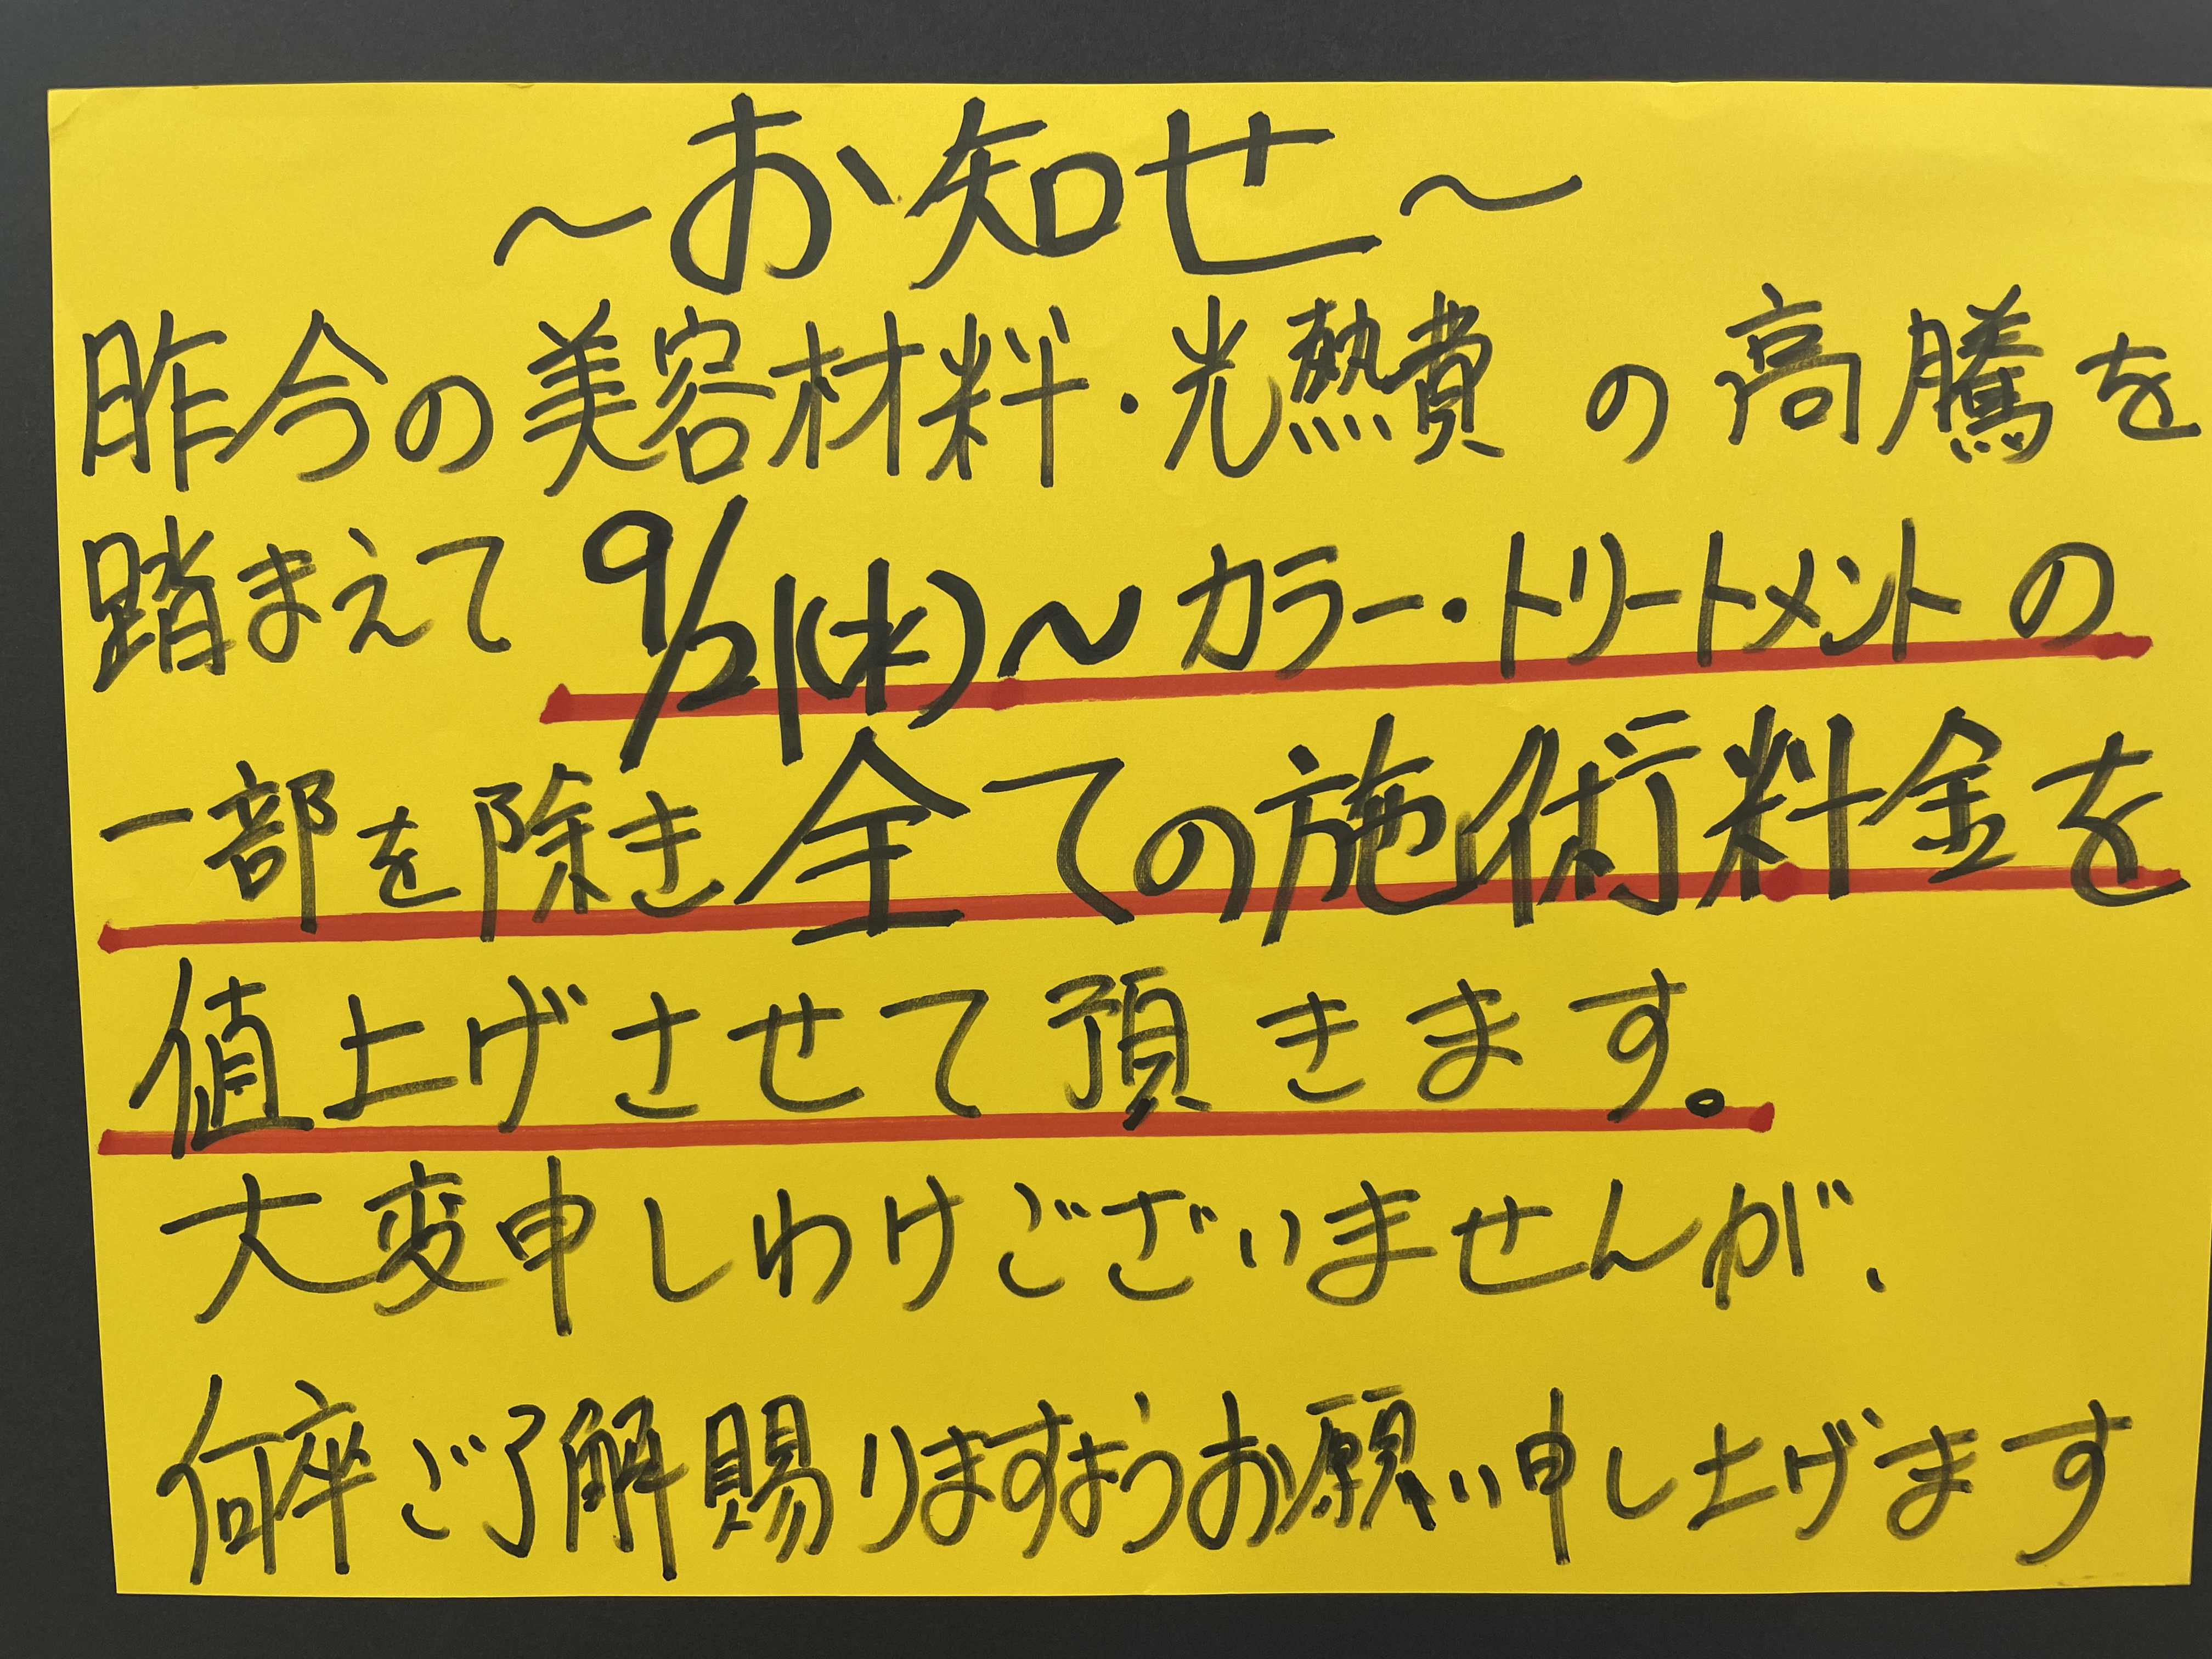 ～お知せ～
昨今の美容材料・光熱費の高騰を
踏まえて9/21(水)～カラー・トリートメントの
一部を除き全ての施術料金を
値上げさせて頂きます。
大変申しわけございませんが、
何卒ご了解賜りますようお願い申し上げます